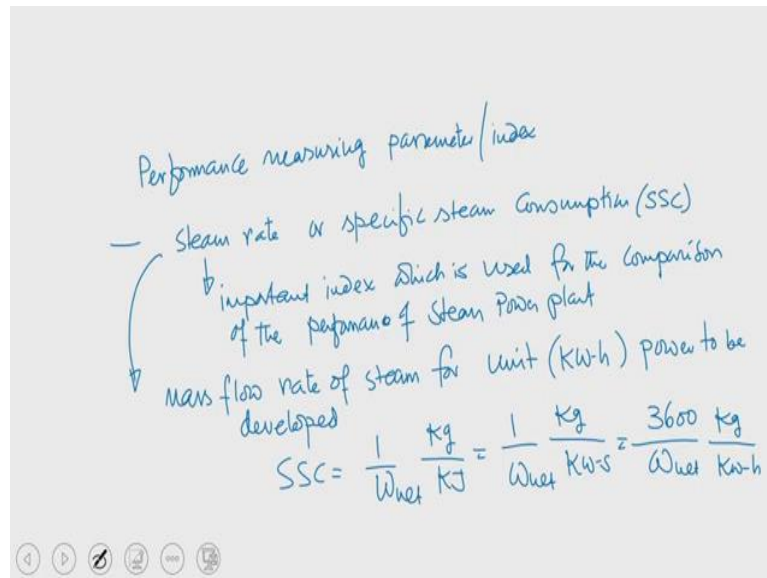 Performance measuring parameter/index
— Steam rate or specific steam Consumption (SSC)
important index which is used for the comparison
of the performance of steam Power plant
mass flow rate of steam for unit (KW-h) power to be
developed
SSC = 1/Wnet Kg/KJ = 1/Wnet Kg/KW-s = 3600/Wnet Kg/KW-h